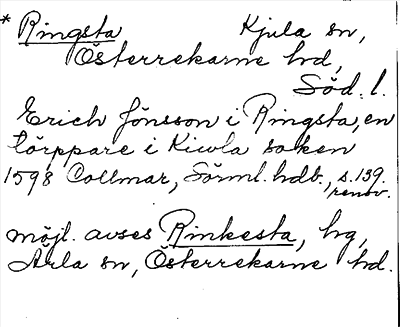 * Ringsta Kjula sn,
Österrekarne hd,
Söd. l.
Erich Jönsson i Ringsta, en
törppare i Kiwla soken
1598 Collmar, Sörml. hdb., s. 139.
renov.
möjl. avses Rinkesta, hg,
Ärla sn, Österrekarne hd.